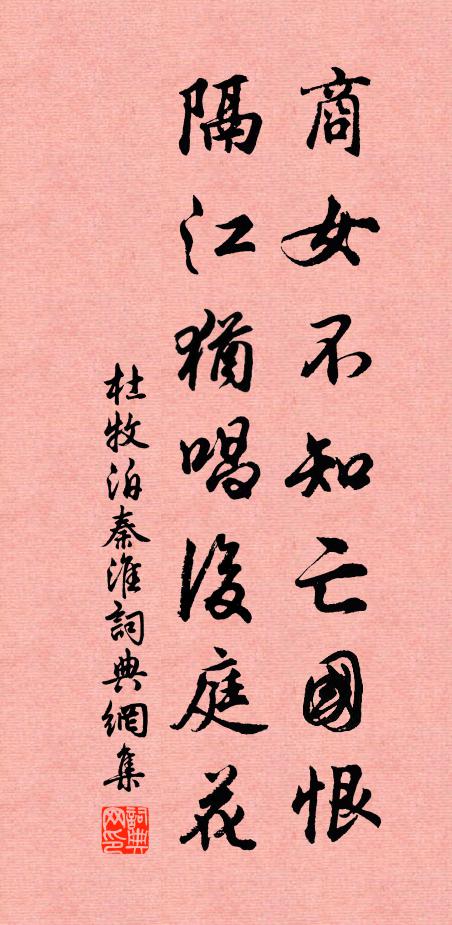 商女不知亡國恨
隔江猶唱後庭花
杜牧泊秦淮詞典網集
詞典網印